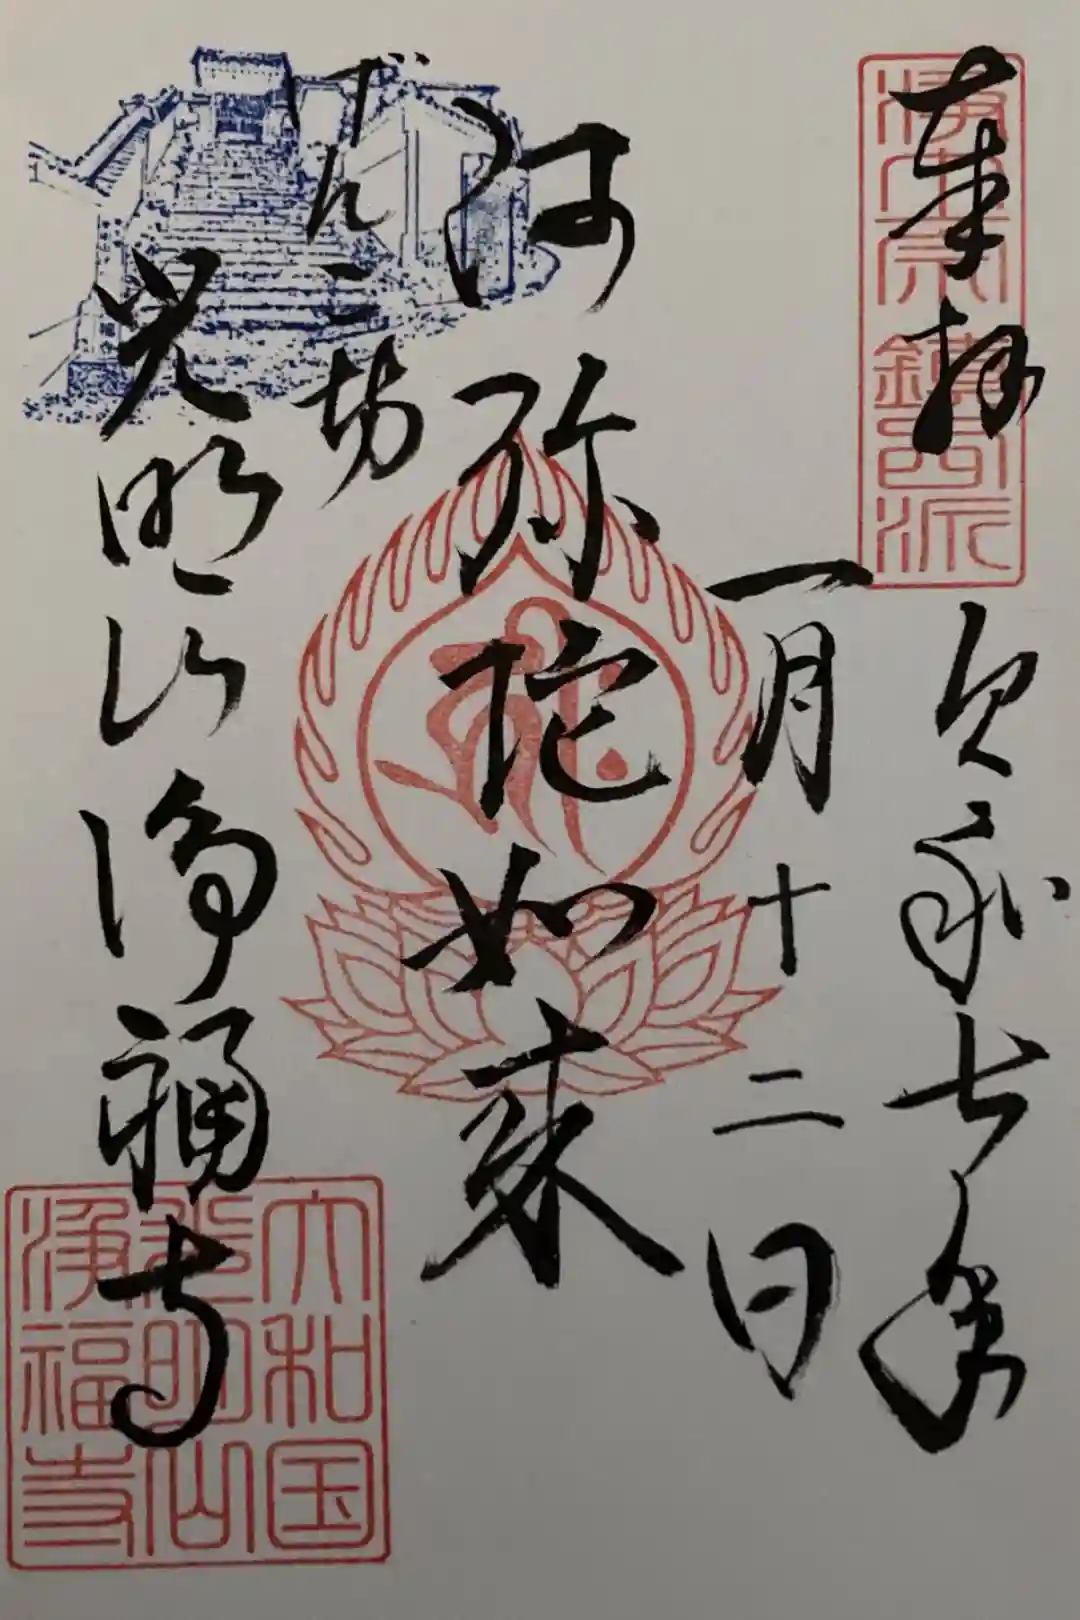 奉拝
浄土宗鎮西派
令和七年
一月十二日
阿弥陀如来
坊
光明山浄福寺
大和国
光明山
浄福寺